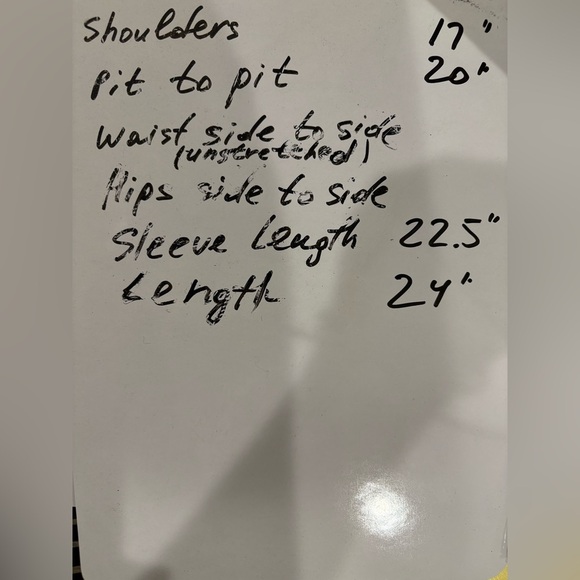 Shoulders 17"
Pit to pit 20"
Waist side to side
(unstretched)
Hips side to side
Sleeve Length 22.5"
Length 24"